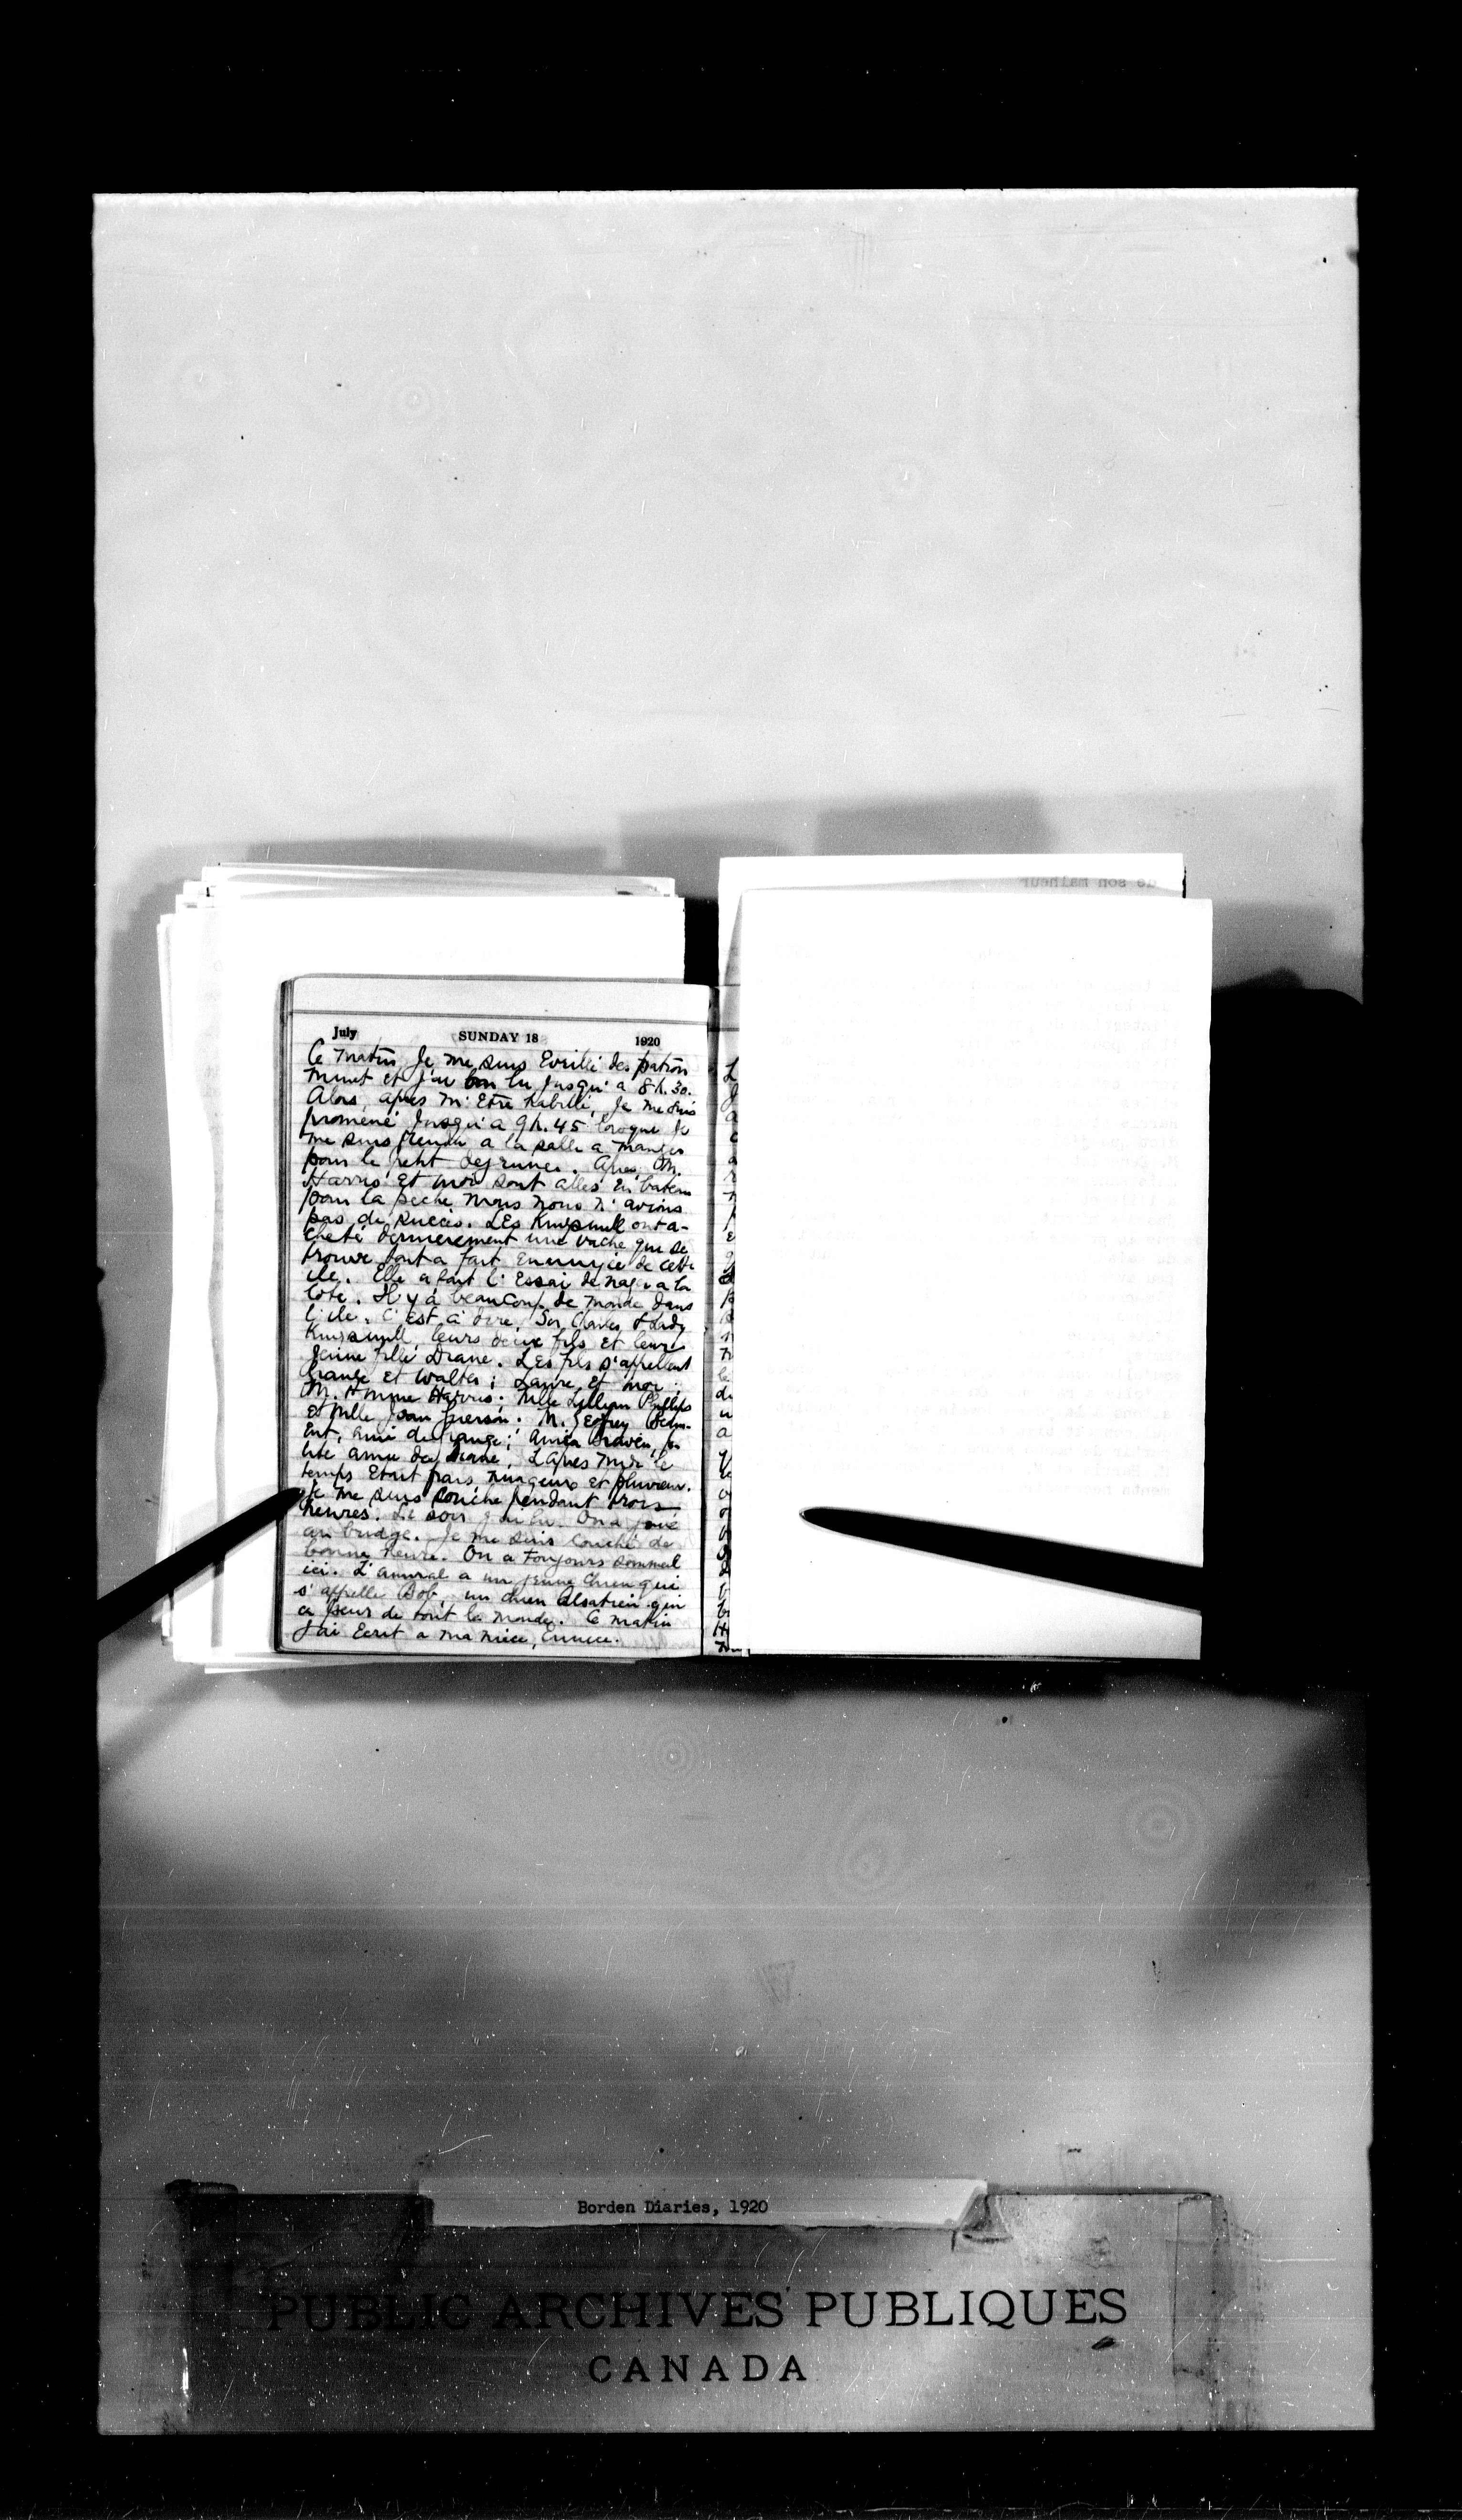 de son malheur
July SUNDAY 18 1920
Ce matin je me suis Eveillé des patron
minet et j'ai lu jusqu'a 8h.30.
Alors, apres m'Etre habillé, je me suis
promené jusqu'a 9h.45 lorsque je
me suis rendu a la salle a manger
pour le petit dejeuner. Apres, M.
Harris et moi sont allés en bateau
pour la peche mais nous n'avions
pas de succès. LEs Kingsmill ont a-
cheté dernierement une vache qui se
trouve tout a fait Ennuyée de cette
ile. Elle a fait l'Essai de nager a la
cote. Il y a beaucoup de monde dans
l'ile. C'est a dire, Sir Charles & Lady
Kingsmill, leurs deux fils et leur
jeune fille Diane. LEs fils s'appellent
et Walter; Laura et moi;
M. Harris; Mlle Lillian Phillips
Et Mlle Joan M.
Ent, ami de Anita
tite amie de Diane. L'apres midi le
temps Etait frais, nuageux et pluvieux.
Je me suis couché pendant trois
heures. Le soir j'ai lu. On a joué
au bridge. Je me suis couché de
bonne heure. On a toujours sommeil
ici. L'amiral a un jeune chien qui
s'appelle Bob, un chien Alsatien qui
a peur de tout le monde. Ce matin
j'ai Ecrit a ma niece, Eunice.
Borden Diaries, 1920
PUBLIC ARCHIVES PUBLIQUES
CANADA